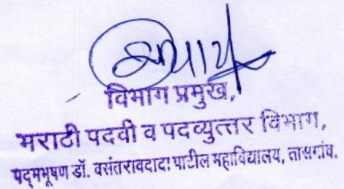 विभाग प्रमुख,
मराठी पदवी व पदव्युत्तर विभाग,
पद्मभूषण डॉ. वसंतरावदादा पाटील महाविद्यालय, तासगांव.